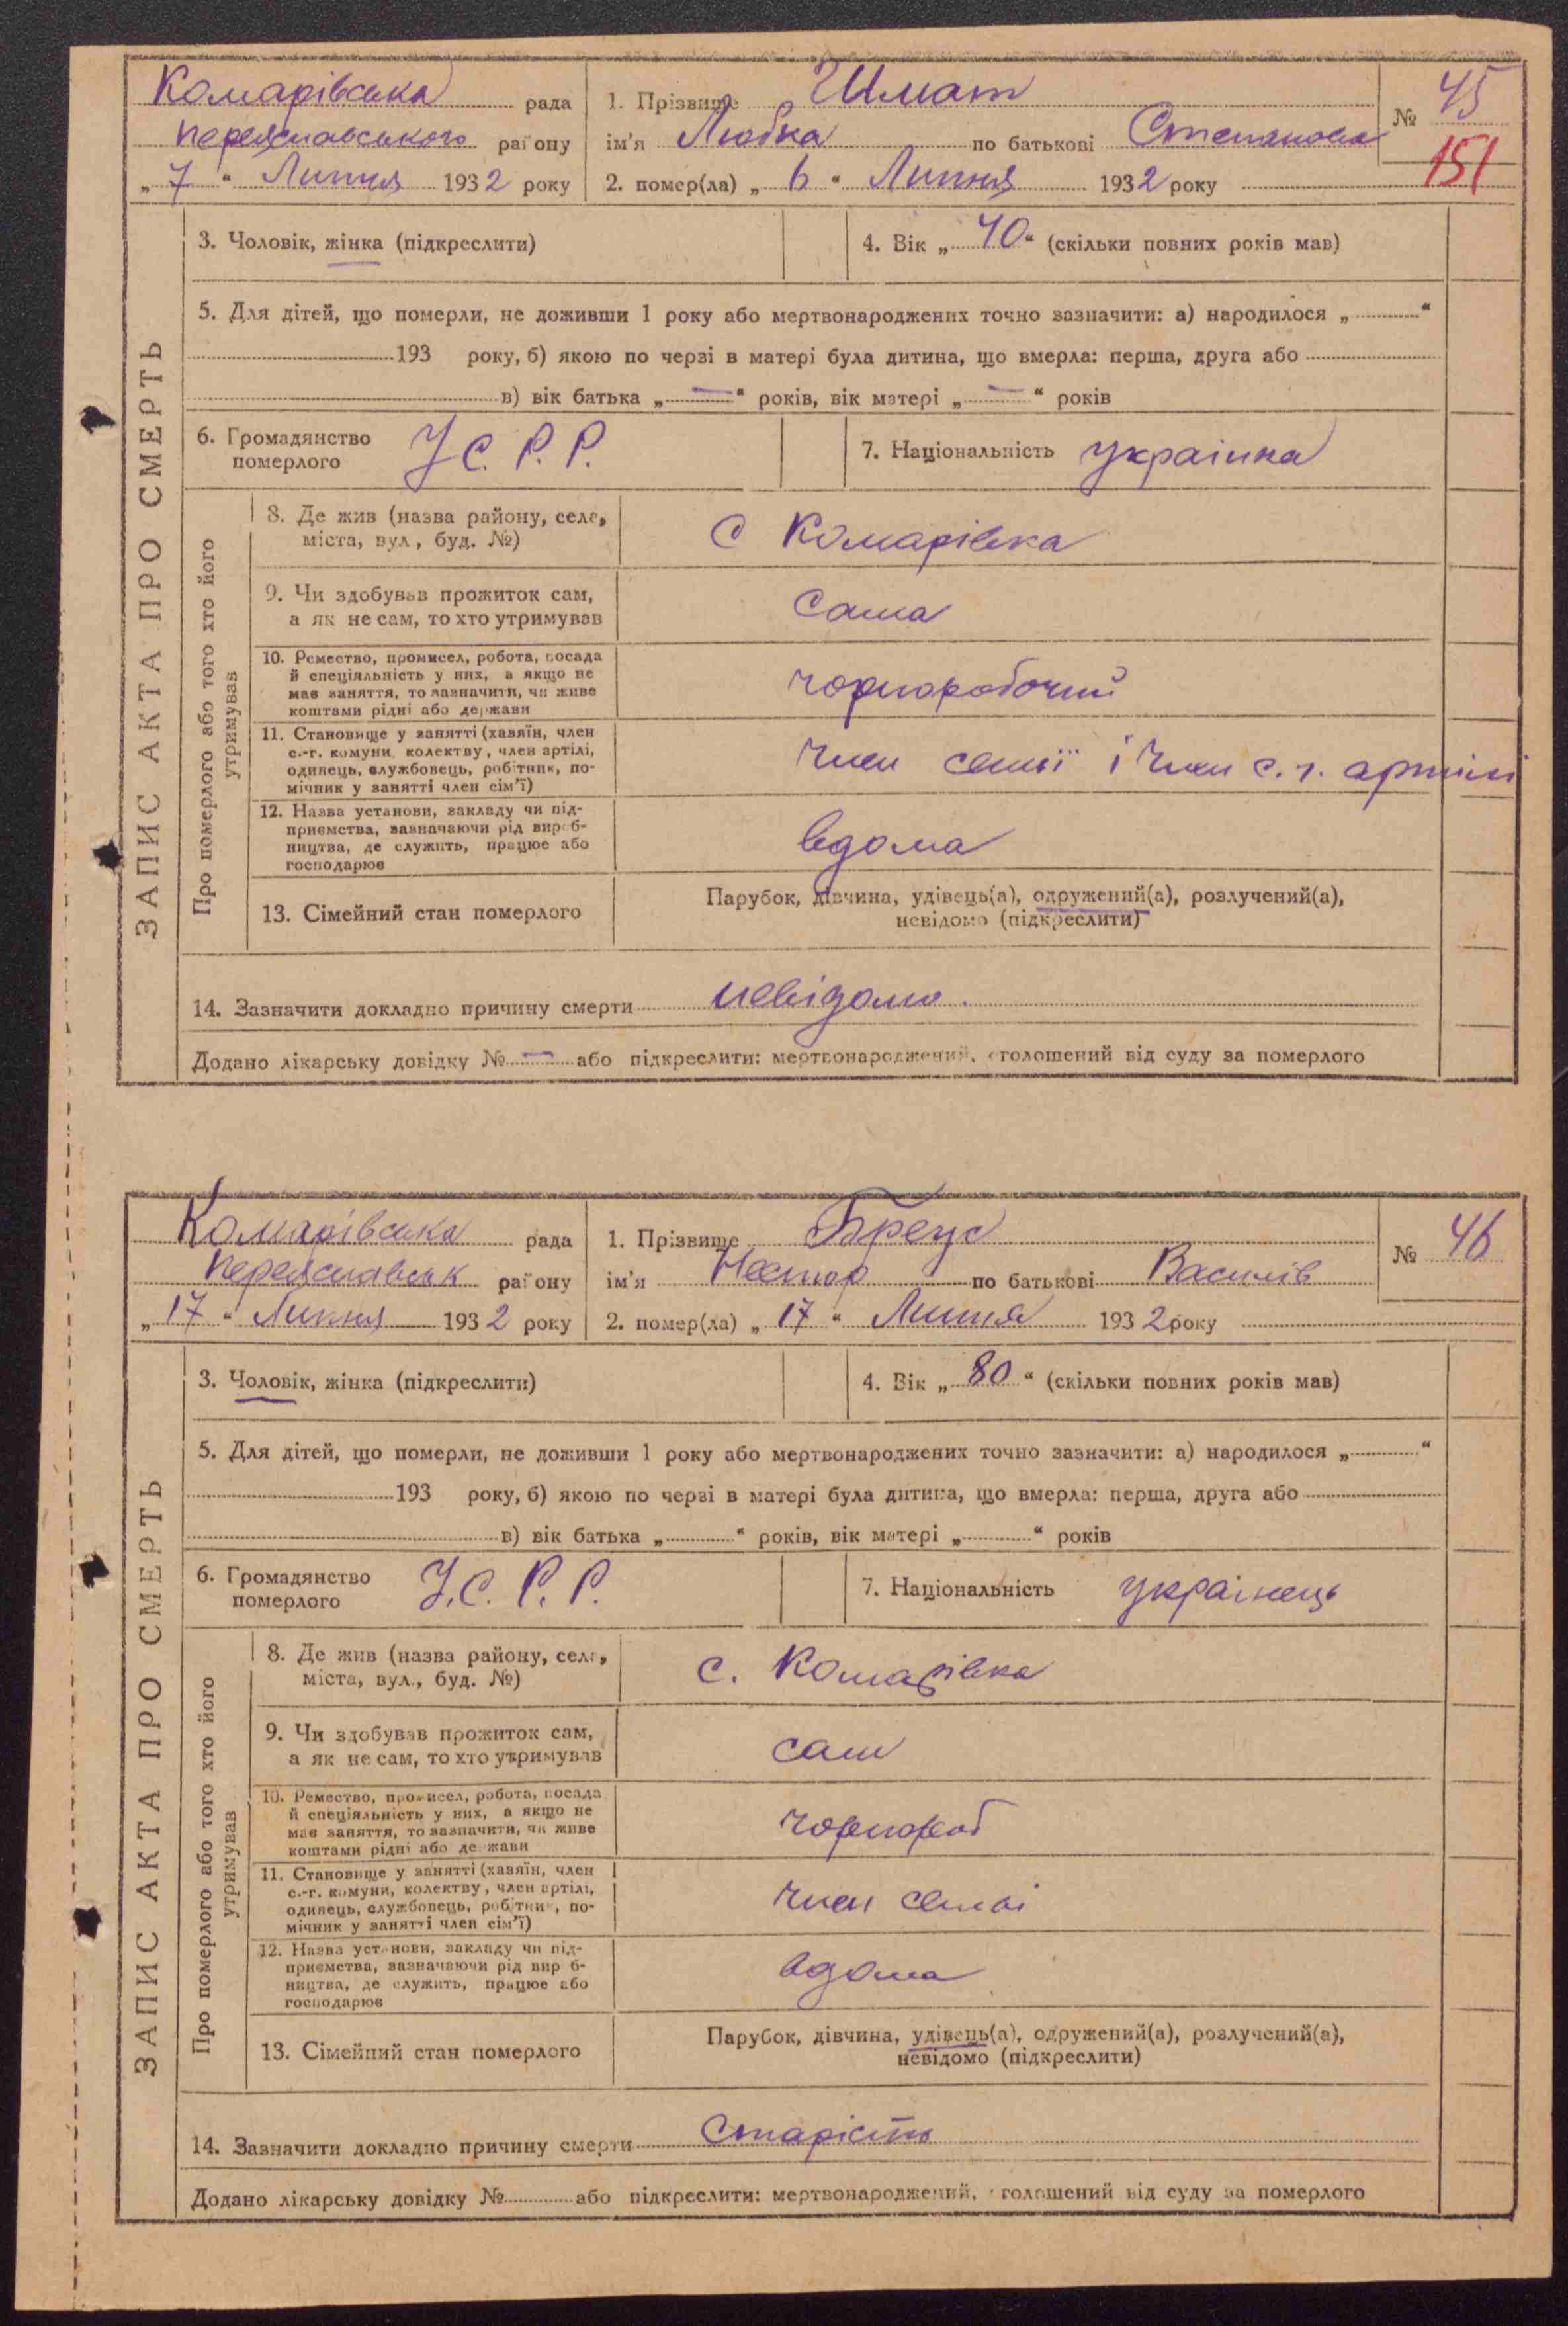 ЗАПИС АКТА ПРО СМЕРТЬ
Комарівська рада
Переяславського району
„ 7 “ Липня 1932 року
1. Прізвище Шмат
ім'я Любка по батькові Степанова
2. помер(ла) „ 6 “ Липня 1932 року
№ 45
151
3. Чоловік, жінка (підкреслити)
4. Вік „ 40 “ (скільки повних років мав)
5. Для дітей, що померли, не доживши 1 року або мертвонароджених точно зазначити: а) народилося „ “
193 року, б) якою по черзі в матері була дитина, що вмерла: перша, друга або
в) вік батька „ — “ років, вік матері „ — “ років
6. Громадянство
померлого
У С. Р. Р.
7. Національність українка
Про померлого або того хто його
утримував
8. Де жив (назва району, села,
міста, вул., буд. №)
с Комарівка
9. Чи здобував прожиток сам,
а як не сам, то хто утримував
сама
10. Ремество, промисел, робота, посада
й спеціяльність у них, а якщо не
має заняття, то зазначити, чи живе
коштами рідні або держави
чорноробочий
11. Становище у занятті (хазяїн, член
с.-г. комуни, колективу, член артілі,
одинець, службовець, робітник, по-
мічник у занятті член сім'ї)
член семьї і член с. г. артілі
12. Назва установи, закладу чи під-
приємства, зазначаючи рід вироб-
ництва, де служить, працює або
господарює
вдома
13. Сімейний стан померлого
Парубок, дівчина, удівець(а), одружений(а), розлучений(а),
невідомо (підкреслити)
14. Зазначити докладно причину смерти невідомо.
Додано лікарську довідку № — або підкреслити: мертвонароджений, оголошений від суду за померлого
ЗАПИС АКТА ПРО СМЕРТЬ
Комарівська рада
Переяславськ району
„ 17 “ Липня 1932 року
1. Прізвище Бреус
ім'я Нестор по батькові Василів
2. помер(ла) „ 17 “ Липня 1932 року
№ 46
3. Чоловік, жінка (підкреслити)
4. Вік „ 80 “ (скільки повних років мав)
5. Для дітей, що померли, не доживши 1 року або мертвонароджених точно зазначити: а) народилося „ “
193 року, б) якою по черзі в матері була дитина, що вмерла: перша, друга або
в) вік батька „ “ років, вік матері „ “ років
6. Громадянство
померлого
У. С. Р. Р.
7. Національність українець
Про померлого або того хто його
утримував
8. Де жив (назва району, села,
міста, вул., буд. №)
с. Комарівка
9. Чи здобував прожиток сам,
а як не сам, то хто утримував
сам
10. Ремество, промисел, робота, посада
й спеціяльність у них, а якщо не
має заняття, то зазначити, чи живе
коштами рідні або держави
чорнороб
11. Становище у занятті (хазяїн, член
с.-г. комуни, колективу, член артілі,
одинець, службовець, робітник, по-
мічник у занятті член сім'ї)
член семьі
12. Назва установи, закладу чи під-
приємства, зазначаючи рід вироб-
ництва, де служить, працює або
господарює
вдома
13. Сімейний стан померлого
Парубок, дівчина, удівець(а), одружений(а), розлучений(а),
невідомо (підкреслити)
14. Зазначити докладно причину смерти Старість
Додано лікарську довідку № або підкреслити: мертвонароджений, оголошений від суду за померлого